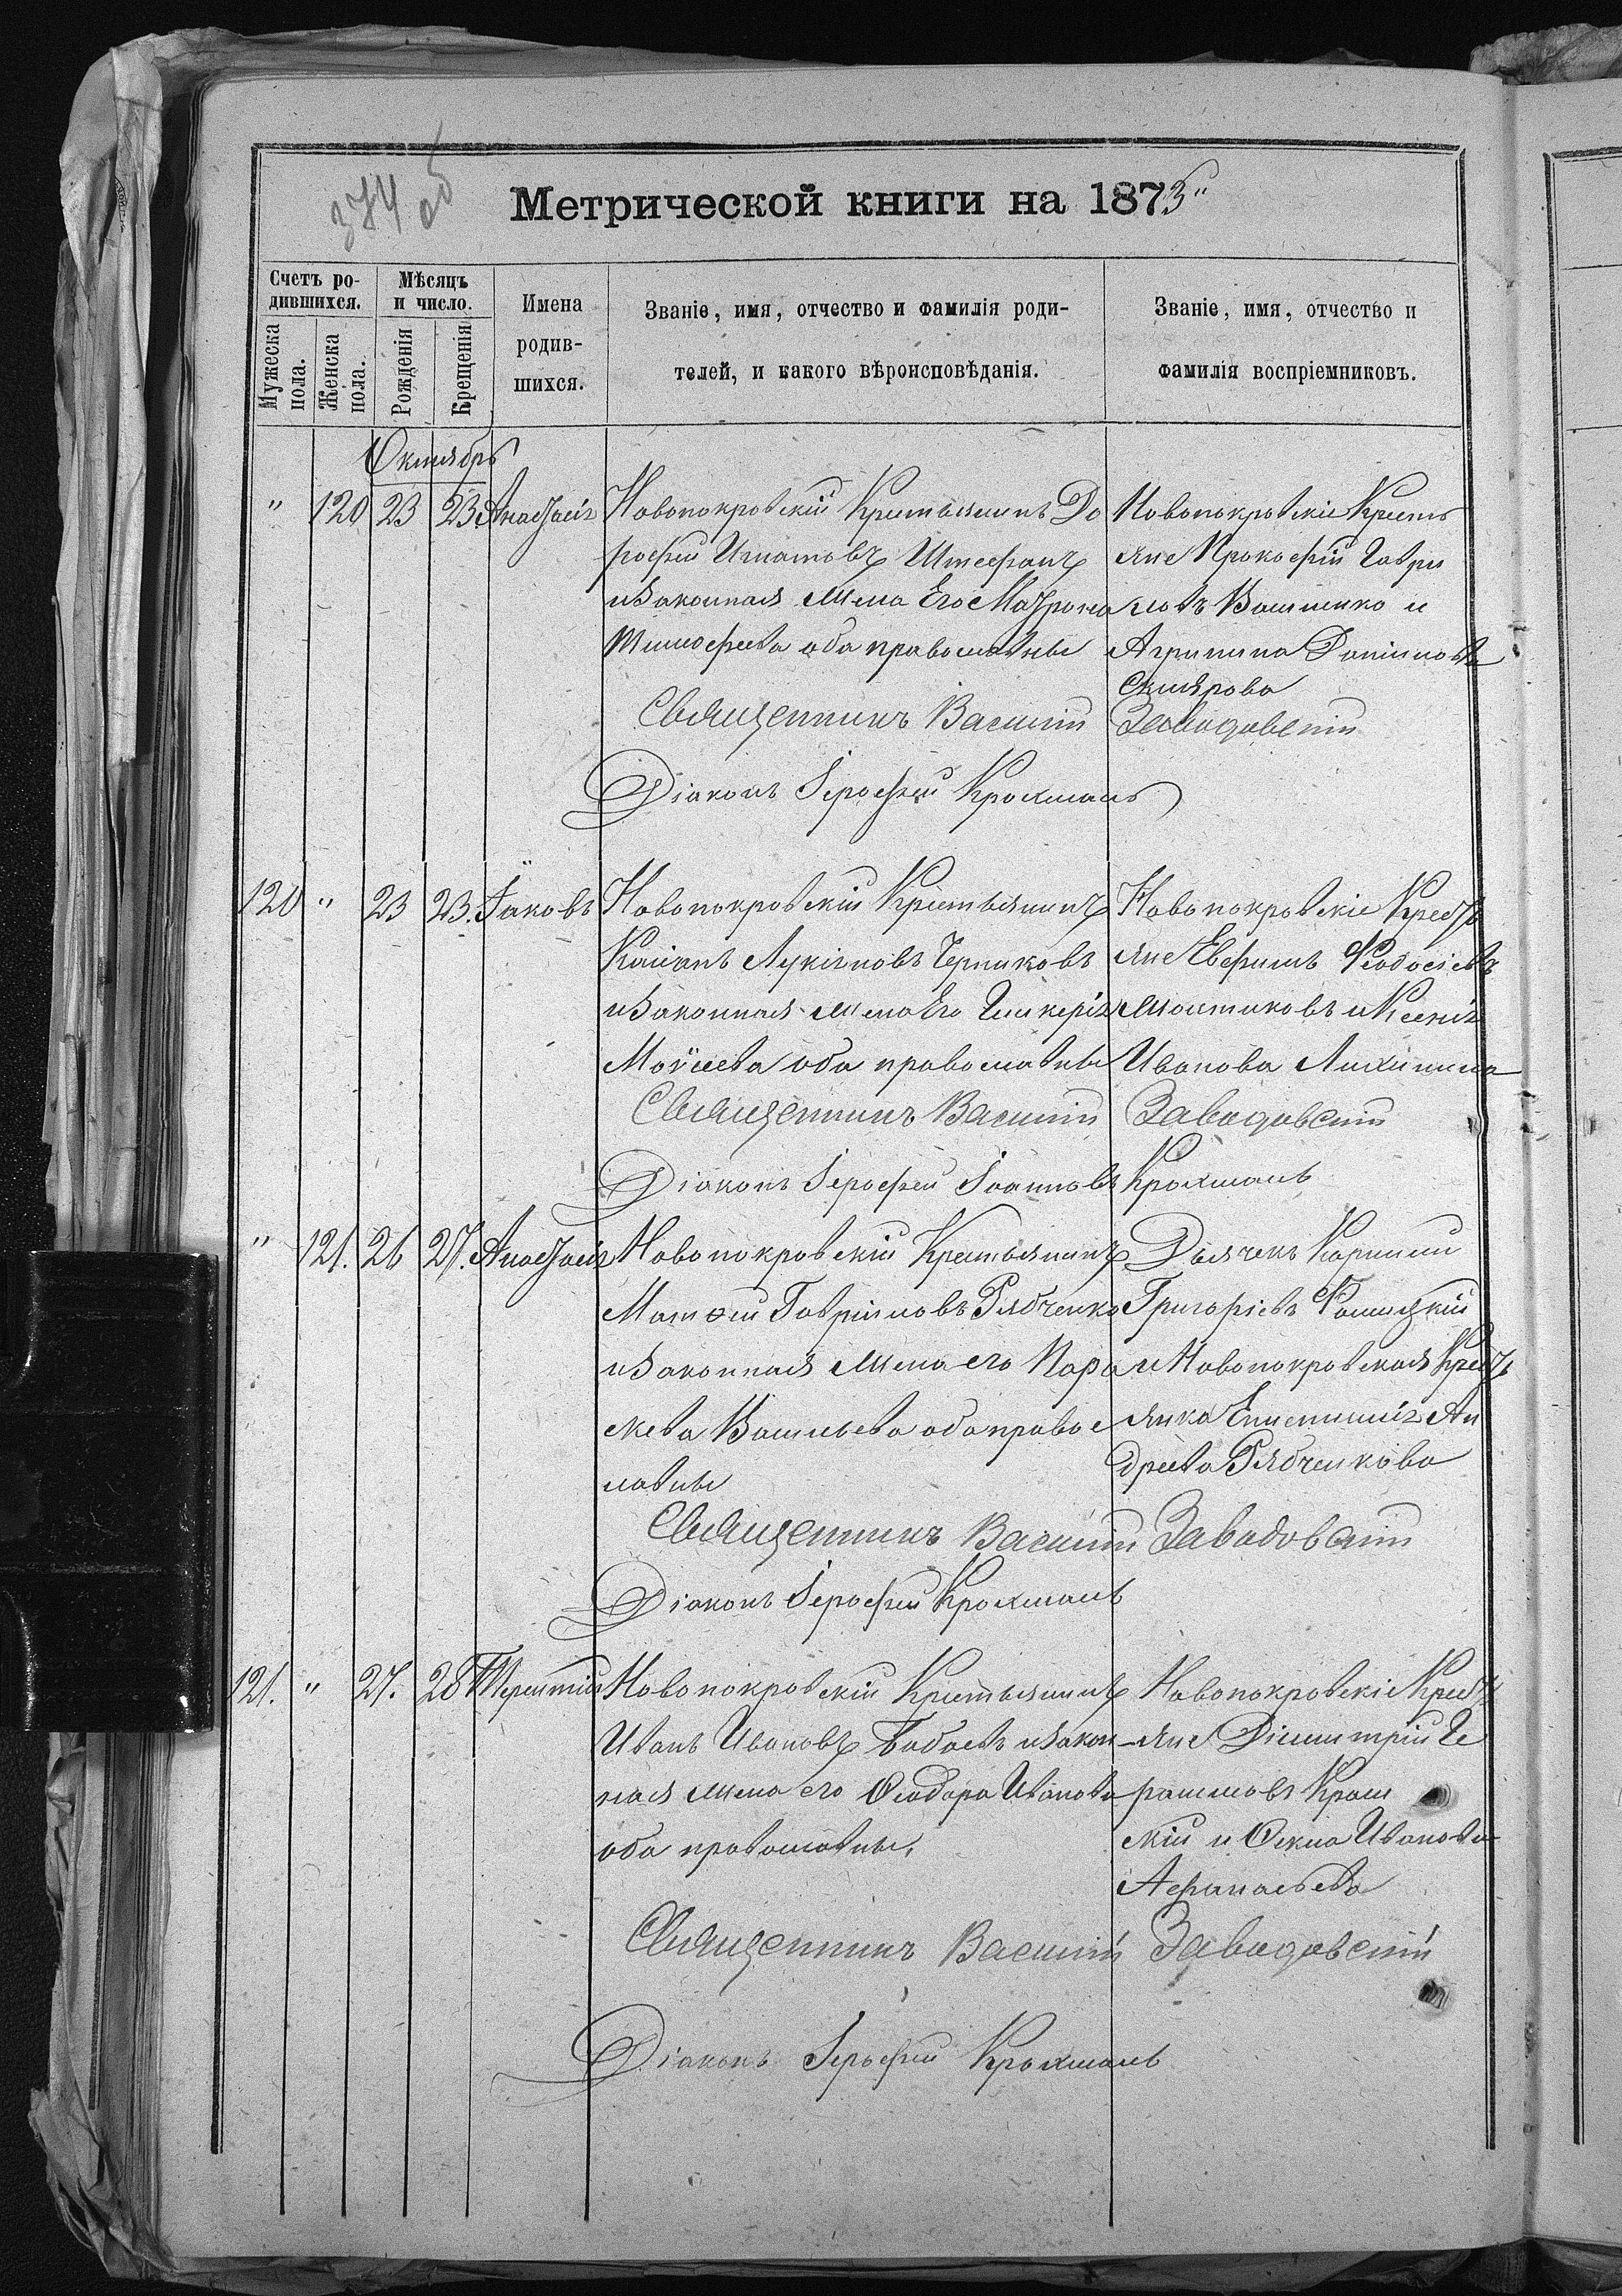 374 об
Метрической книги на 1875"
Счетъ ро-
дившихся.
Мѣсяцъ
и число.
Мужеска
пола.
Женска
пола.
Рожденія
Крещенія
Имена
родив-
шихся.
Званіе, имя, отчество и фамилія роди-
телей, и какого вѣроисповѣданія.
Званіе, имя, отчество и
фамилія воспріемниковъ.
Октябрь
" 120 23 23 Анастасія
Новопокровскій Крестьянинъ До
рофей Игнатовъ Штефанъ
и законная жена Его Матрона
Тимофеева оба православные
Новопокровскіе Кресть
яне Прокофій Гаври
ловъ Ващенко и
Агрипина Даніилова
Склярова
Священникъ Василій Заводовскій
Діаконъ Іерофей Крохмаль
120 " 23 23. Іаковъ
Новопокровскій Крестьянинъ
Касіанъ Лукіановъ Черниковъ
и законная жена Его Гликерія
Моѵсеева оба православные
Новопокровскіе Кресть
яне Евфимъ Феодосіевъ
и Ксенія
Иванова
Священникъ Василій Заводовскій
Діаконъ Іерофей Іоанновъ Крохмаль
" 121. 26 27. Анастасія
Новопокровскій Крестьянинъ
Матѳей Гавріиловъ Рябченко
и законная жена его Пара
скева Васильева оба правос
лавные
Дьячекъ Корнилій
Григоріевъ Фомицкій
и Новопокровская Кресть
янка Епистимія Ан
дреева Рябченкова
Священникъ Василій Заводовскій
Діаконъ Іерофей Крохмаль
121. " 27. 28 Терентій
Новопокровскій Крестьянинъ
Иванъ Ивановъ Бабаевъ и закон
ная жена его Ѳеодора Иванова
оба православные,
Новопокровскіе Кресть
яне Димитрій Ге
расимовъ Крам
скій и Ѳекла Иванова
Афанасьева
Священникъ Василій Заводовскій
Діаконъ Іерофей Крохмаль